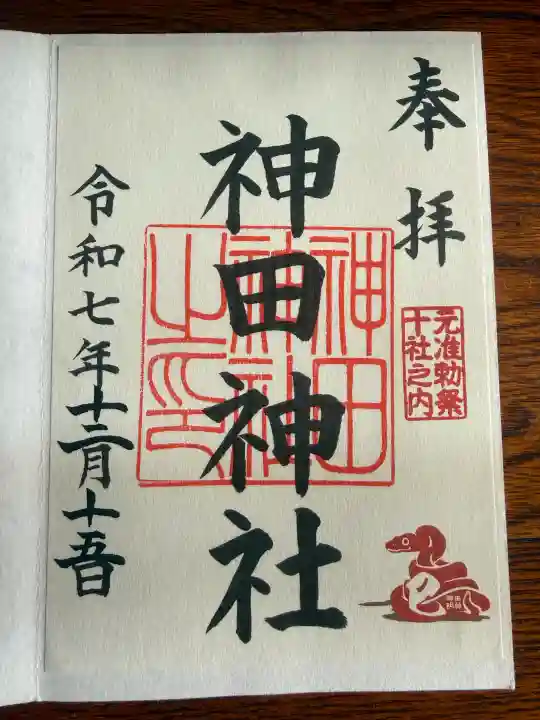 奉拝
元准勅祭
十社之内
巳
神田神社
神田
神社
之印
令和七年十二月十五日